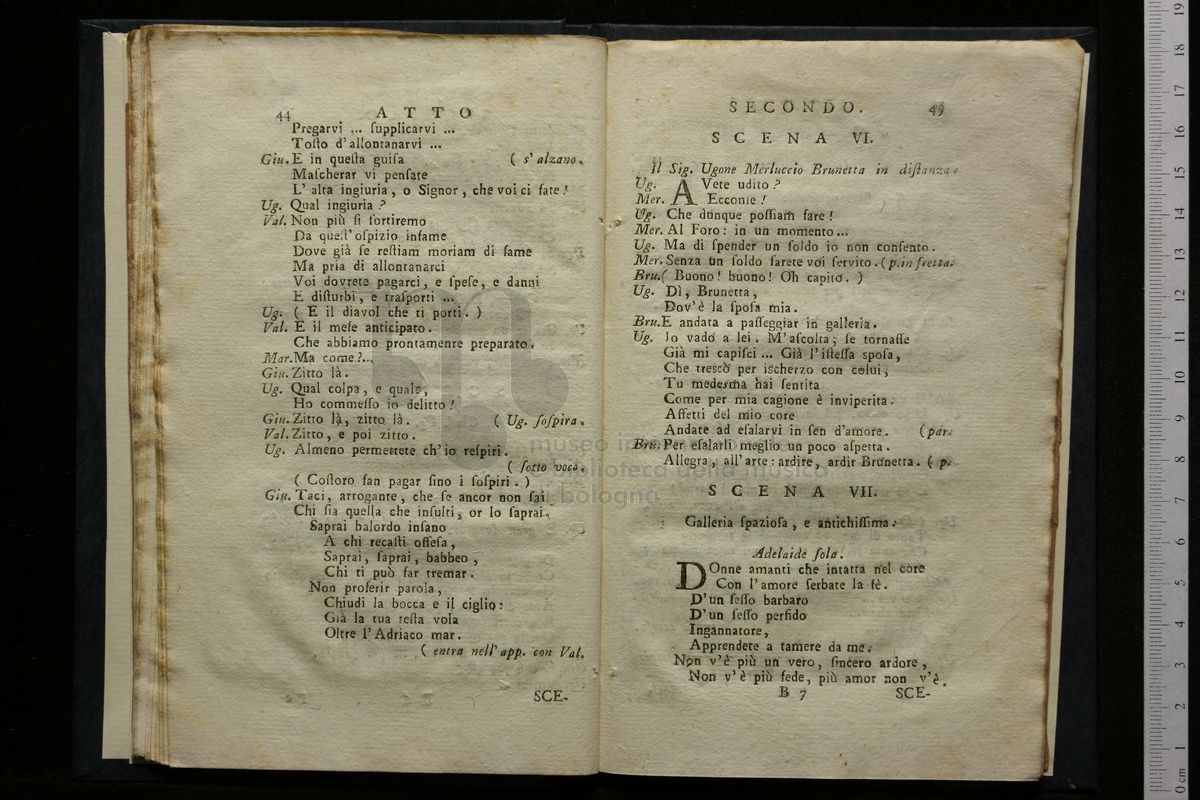 44 ATTO
Pregarvi ... ſupplicarvi ...
Toſto d'allontanarvi ...
Giu. E in queſta guiſa ( s'alzano.
Maſcherar vi penſate
L'alta ingiuria, o Signor, che voi ci fate!
Ug. Qual ingiuria?
Val. Non più ſi ſortiremo
Da queſt'oſpizio infame
Dove già ſe reſtiam moriam di fame
Ma pria di allontanarci
Voi dovrete pagarci, e ſpeſe, e danni
E diſturbi, e traſporti ...
Ug. ( E il diavol che ti porti. )
Val. E il meſe anticipato.
Che abbiamo prontamenre preparato.
Mar. Ma come?...
Giu. Zitto là.
Ug. Qual colpa, e quale,
Ho commeſſo io delitto!
Giu. Zitto là, zitto là. ( Ug. ſoſpira.
Val. Zitto, e poi zitto.
Ug. Almeno permettete ch'io reſpiri.
( ſotto voce.
( Coſtoro fan pagar fino i ſoſpiri. )
Giu. Taci, arrogante, che ſe ancor non ſai
Chi ſia quella che inſulti, or lo ſaprai.
Saprai balordo inſano
A chi recaſti offeſa,
Saprai, ſaprai, babbeo,
Chi ti può far tremar.
Non proferir parola,
Chiudi la bocca e il ciglio:
Già la tua teſta vola
Oltre l'Adriaco mar.
( entra nell'app. con Val.
SCE-
SECONDO. 45
SCENA VI.
Il Sig. Ugone Merluccio Brunetta in diſtanza.
Ug. AVete udito?
Mer. Eccome!
Ug. Che dunque poſſiam fare!
Mer. Al Foro: in un momento...
Ug. Ma di ſpender un ſoldo io non conſento.
Mer. Senza un ſoldo ſarete voi ſervito. ( p. in fretta.
Bru. ( Buono! buono! Oh capito. )
Ug. Dì, Brunetta,
Dov'è la ſpoſa mia.
Bru. E andata a paſſeggiar in galleria.
Ug. Io vado a lei. M'aſcolta; ſe tornaſſe
Già mi capiſci ... Già l'iſteſſa spoſa,
Che treſcò per iſcherzo con colui,
Tu medesma hai ſentita
Come per mia cagione è inviperita.
Affetti del mio core
Andate ad eſalarvi in ſen d'amore. (par.
Bru. Per eſalarli meglio un poco aſpetta.
Allegra, all'arte: ardire, ardir Brunetta. ( p.
SCENA VII.
Galleria ſpazioſa, e antichiſſima.
Adelaide ſola.
DOnne amanti che intatta nel core
Con l'amore ſerbate la fè.
D'un ſeſſo barbaro
D'un ſeſſo perfido
Ingannatore,
Apprendete a tamere da me.
Non v'è più un vero, ſincero ardore,
Non v'è più fede, più amor non v'è.
B 7 SCE-
museo in
biblioteca della musica
bologna
0 cm 1 2 3 4 5 6 7 8 9 10 11 12 13 14 15 16 17 18 19